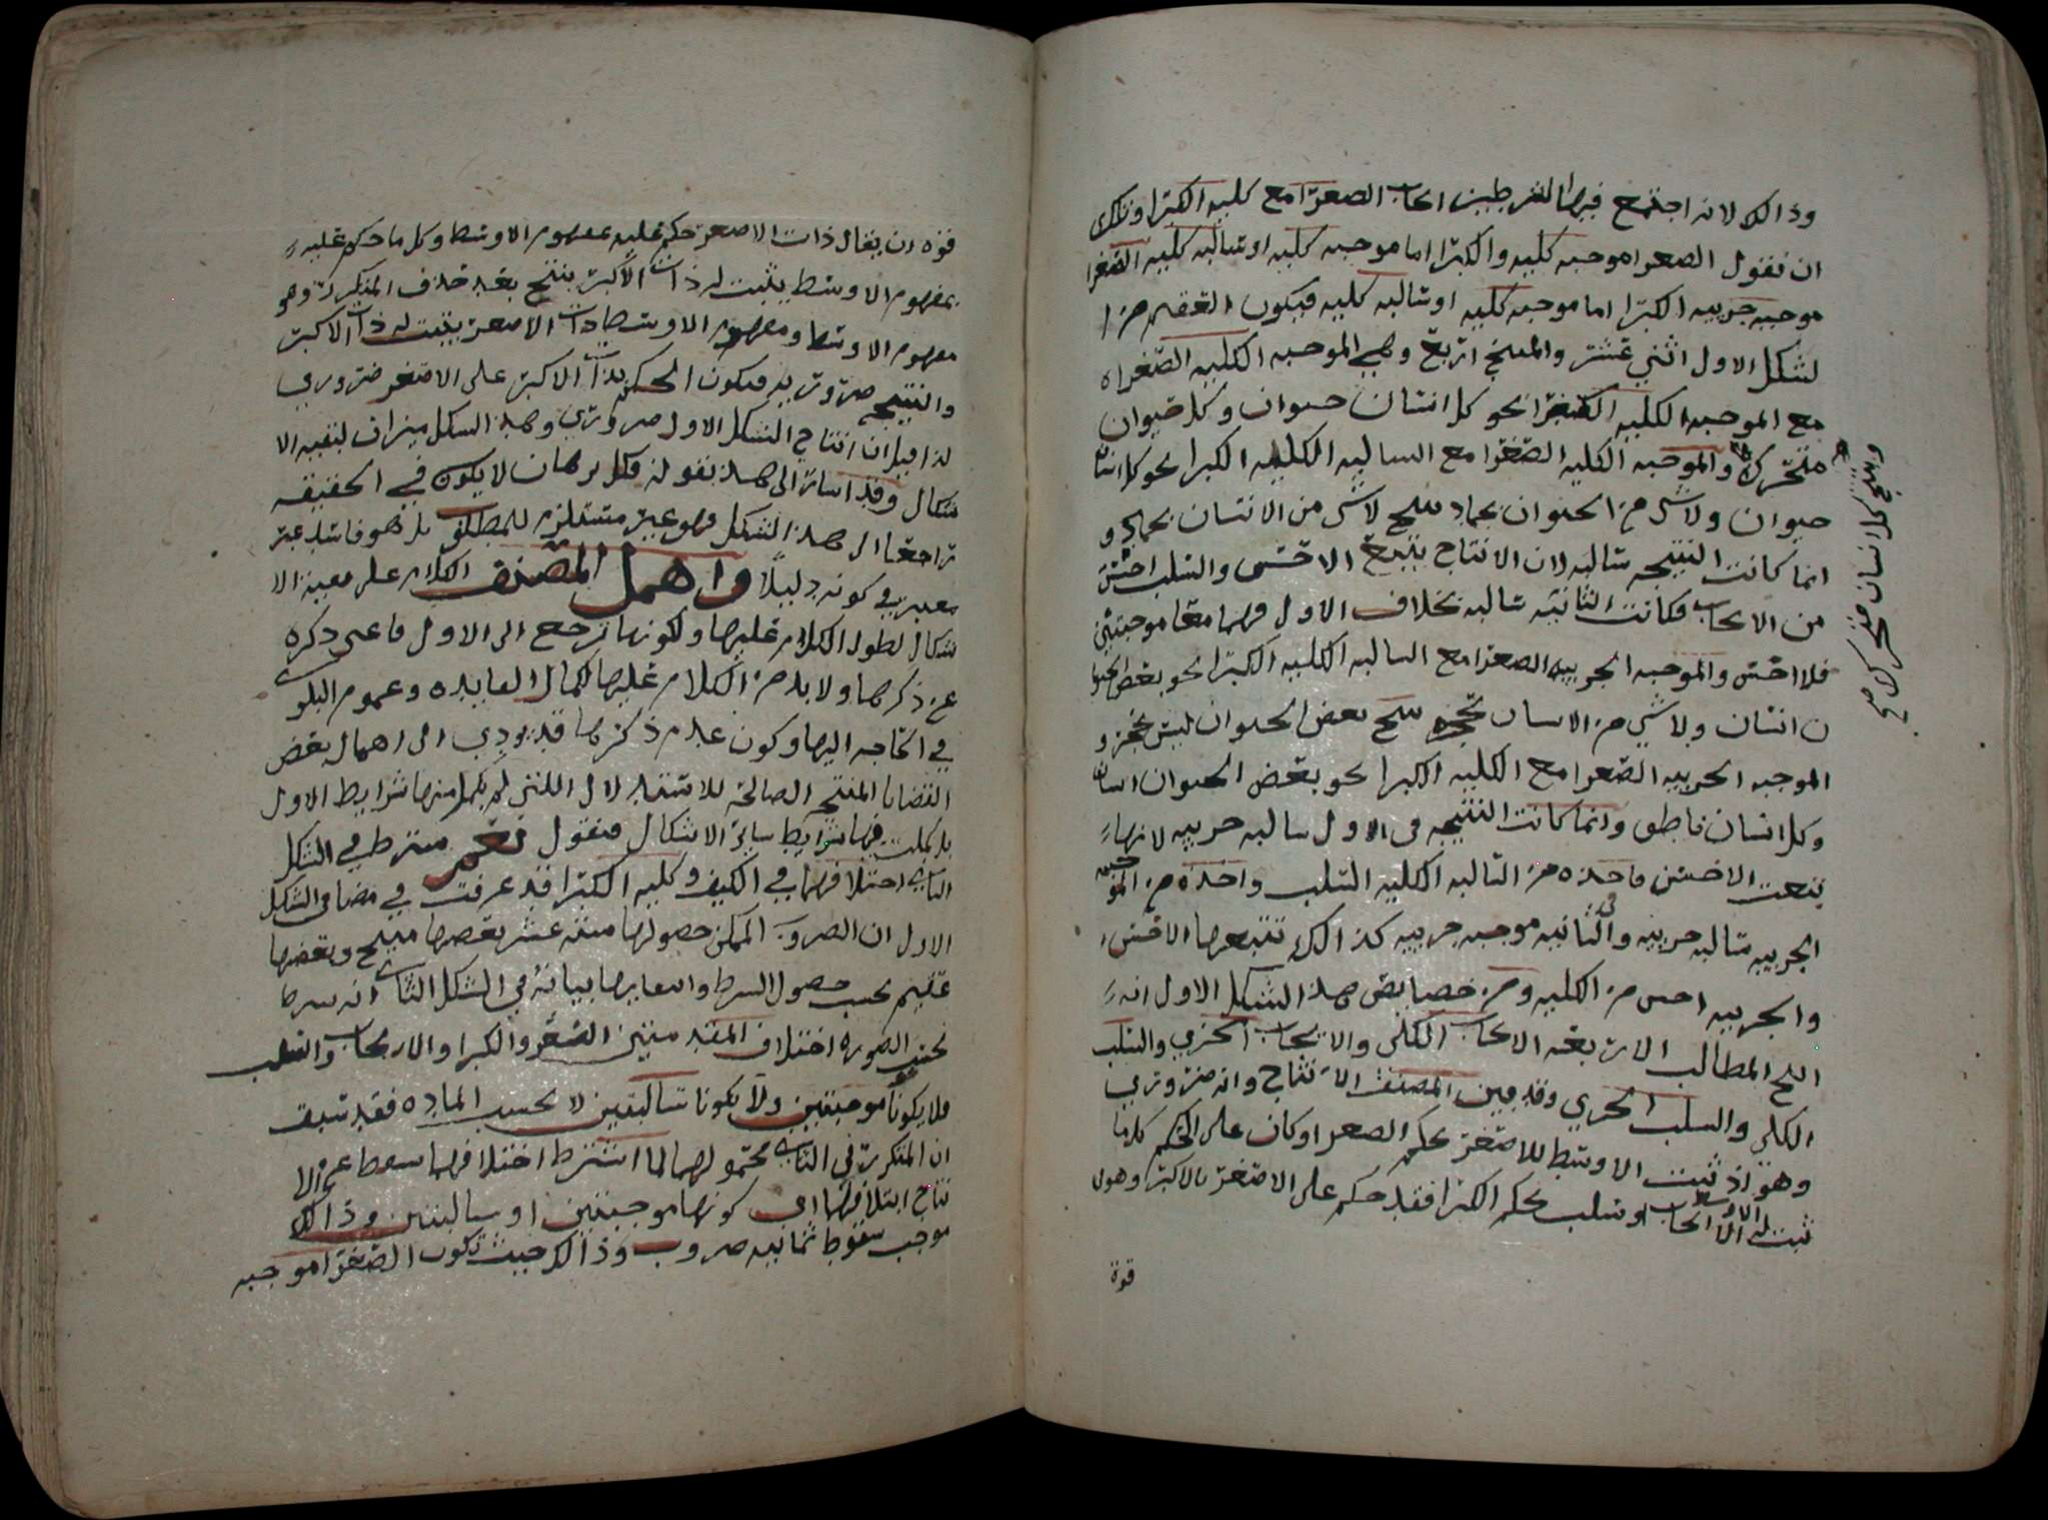 وذالك لانه اجتمع فيها الشرطين ايجاب الصغرا مع كليه الكبرا وذلك
ان نقول الصغرا موجبه كليه والكبرا اما موجبه كليه او سالبه كليه الصغرا
موجبه جزييه الكبرا اما موجبه كليه او سالبه كليه فيكون العقيم من ا
لشكل الاول اثني عشر والمنتج اربع وهي الموجبه الكليه الصغرا
مع الموجبه الكليه الكبرا نحو كل انسان حيوان وكل حيوان
متحرك والموجبه الكليه الصغرا مع السالبه الكليه الكبرا نحو كل انسا
حيوان ولا شي من الحيوان بجماد ينتج لا شي من الانسان بجماد و
انما كانت النتيجه سالبه لان الانتاج يتبع الاخس والسلب اخس
من الايجاب فكانت الثانيه سالبه بخلاف الاول فهما معا موجبتين
فلا اخس والموجبه الجزييه الصغرا مع السالبه الكليه الكبرا نحو بعض الحيوا
ن انسان ولا شي من الانسان بحجر ينتج بعض الحيوان ليس بحجر و
الموجبه الجزييه الصغرا مع الكليه الكبرا نحو بعض الحيوان انسان
وكل انسان ناطق وانما كانت النتيجه في الاول سالبه جزييه لانها
تبعت الاخس ماخذه من السالبه الكليه السلب واخذه من الموجبه
الجزييه سالبه جزييه وفي الثانيه موجبه جزييه كذالك تتبعها الاخس
والجزييه اخس من الكليه ومن خصايص هذا الشكل الاول انه
انتج المطالب الاربعه الايجاب الكلي والايجاب الجزي والسلب
الكلي والسلب الجزي وقد بين المصنف الانتاج وانه ضروري
وهو اذ ثبت الاوسط للاصغر بحكم الصغرا وكان على الحكم كلما
ثبت له الاوسط ايجاب او سلب بحكم الكبرا فقد حكم على الاصغر بالاكبر وهو في
قوة
وينتج كل انسان متحرك صح
قوه ان يقال ذات الاصغر حكم عليه بمفهوم الاوسط وكل ما حكم عليه
بمفهوم الاوسط يثبت له ذات الاكبر ينتج بعد حذف المتكرر وهو
مفهوم الاوسط ومفهوم الاوسط ذات الاصغر يثبت له ذات الاكبر
والنتيجه ضروريه فيكون الحكم بذات الاكبر على الاصغر ضروري
لذا قيل ان انتاج الشكل الاول ضروري وهذا الشكل ميزان لبقيه الا
شكال وقد اشار الى هذا بقوله فكل برهان لا يكون في الحقيقه
راجعا الى هذا الشكل فهو غير مستلزم للمطلوب بل هو فاسد غير
معبر في كونه دليلا واهمل المصنف الكلام على بقيه الا
شكال لطول الكلام عليها ولكونها ترجع الى الاول فاغنى ذكره
عن ذكرها ولا بد من الكلام عليها لكمال الفايده وعموم البلوى
في الحاجه اليها وكون عدم ذكرها قد يودي الى اهمال بعض
القضايا المنتجه الصالحه للاستدلال اللتي لم يكمل منها شرايط الاول
بل كملت فيها شرايط ساير الاشكال فنقول نعم يشترط في الشكل
الثاني اختلافهما في الكيف وكليه الكبرا قد عرفت في مضا في الشكل
الاول ان الضروب الممكن حصولها سته عشر بعضها منتج وبعضها
عقيم بحسب حصول الشرط وانتفايها بيانه في الشكل الثاني انه شرط
بحسب الصوره اختلاف المقدمتين الصغرا والكبرا والايجاب والسلب
فلا يكونا موجبتين ولا يكونا سالبتين لا بحسب الماده فقد سبق
ان المتكرر في الثاني محمولهما لما اشترط اختلافهما سقط عن الا
نتاج ايتلافهما اي كونهما موجبتين او سالبتين وذالك
موجب سقوط ثمانيه ضروب وذالك حيث تكون الصغرا موجبه